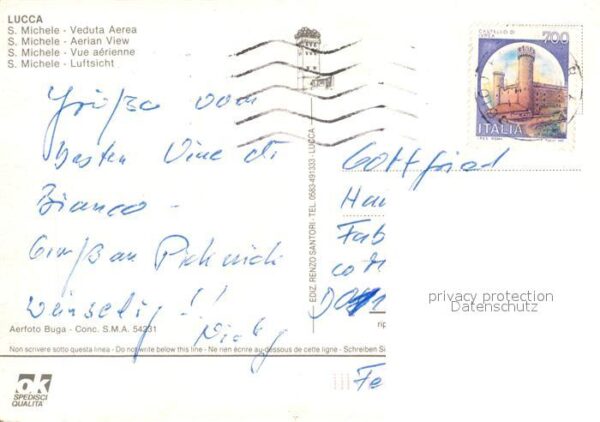 LUCCA
S. Michele - Veduta Aerea
S. Michele - Aerian View
S. Michele - Vue aérienne
S. Michele - Luftsicht
CASTELLO DI
IVREA
700
ITALIA
Grüße vom
besten Vino di
Bianco -
Gruß an Picknick
Gottfried
Ha
Fab
co
privacy protection
Datenschutz
EDIZ. RENZO SANTORI - TEL. 0583-491333 - LUCCA
Aerfoto Buga - Conc. S.M.A. 54231
rip
Non scrivere sotto questa linea - Do not write below this line - Ne rien écrire au-dessous de cette ligne - Schreiben Si
Fe
ok
SPEDISCI
QUALITA'